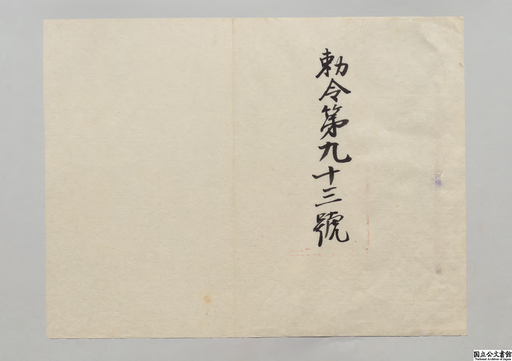 勅令第九十三號
国立公文書館
National Archives of Japan